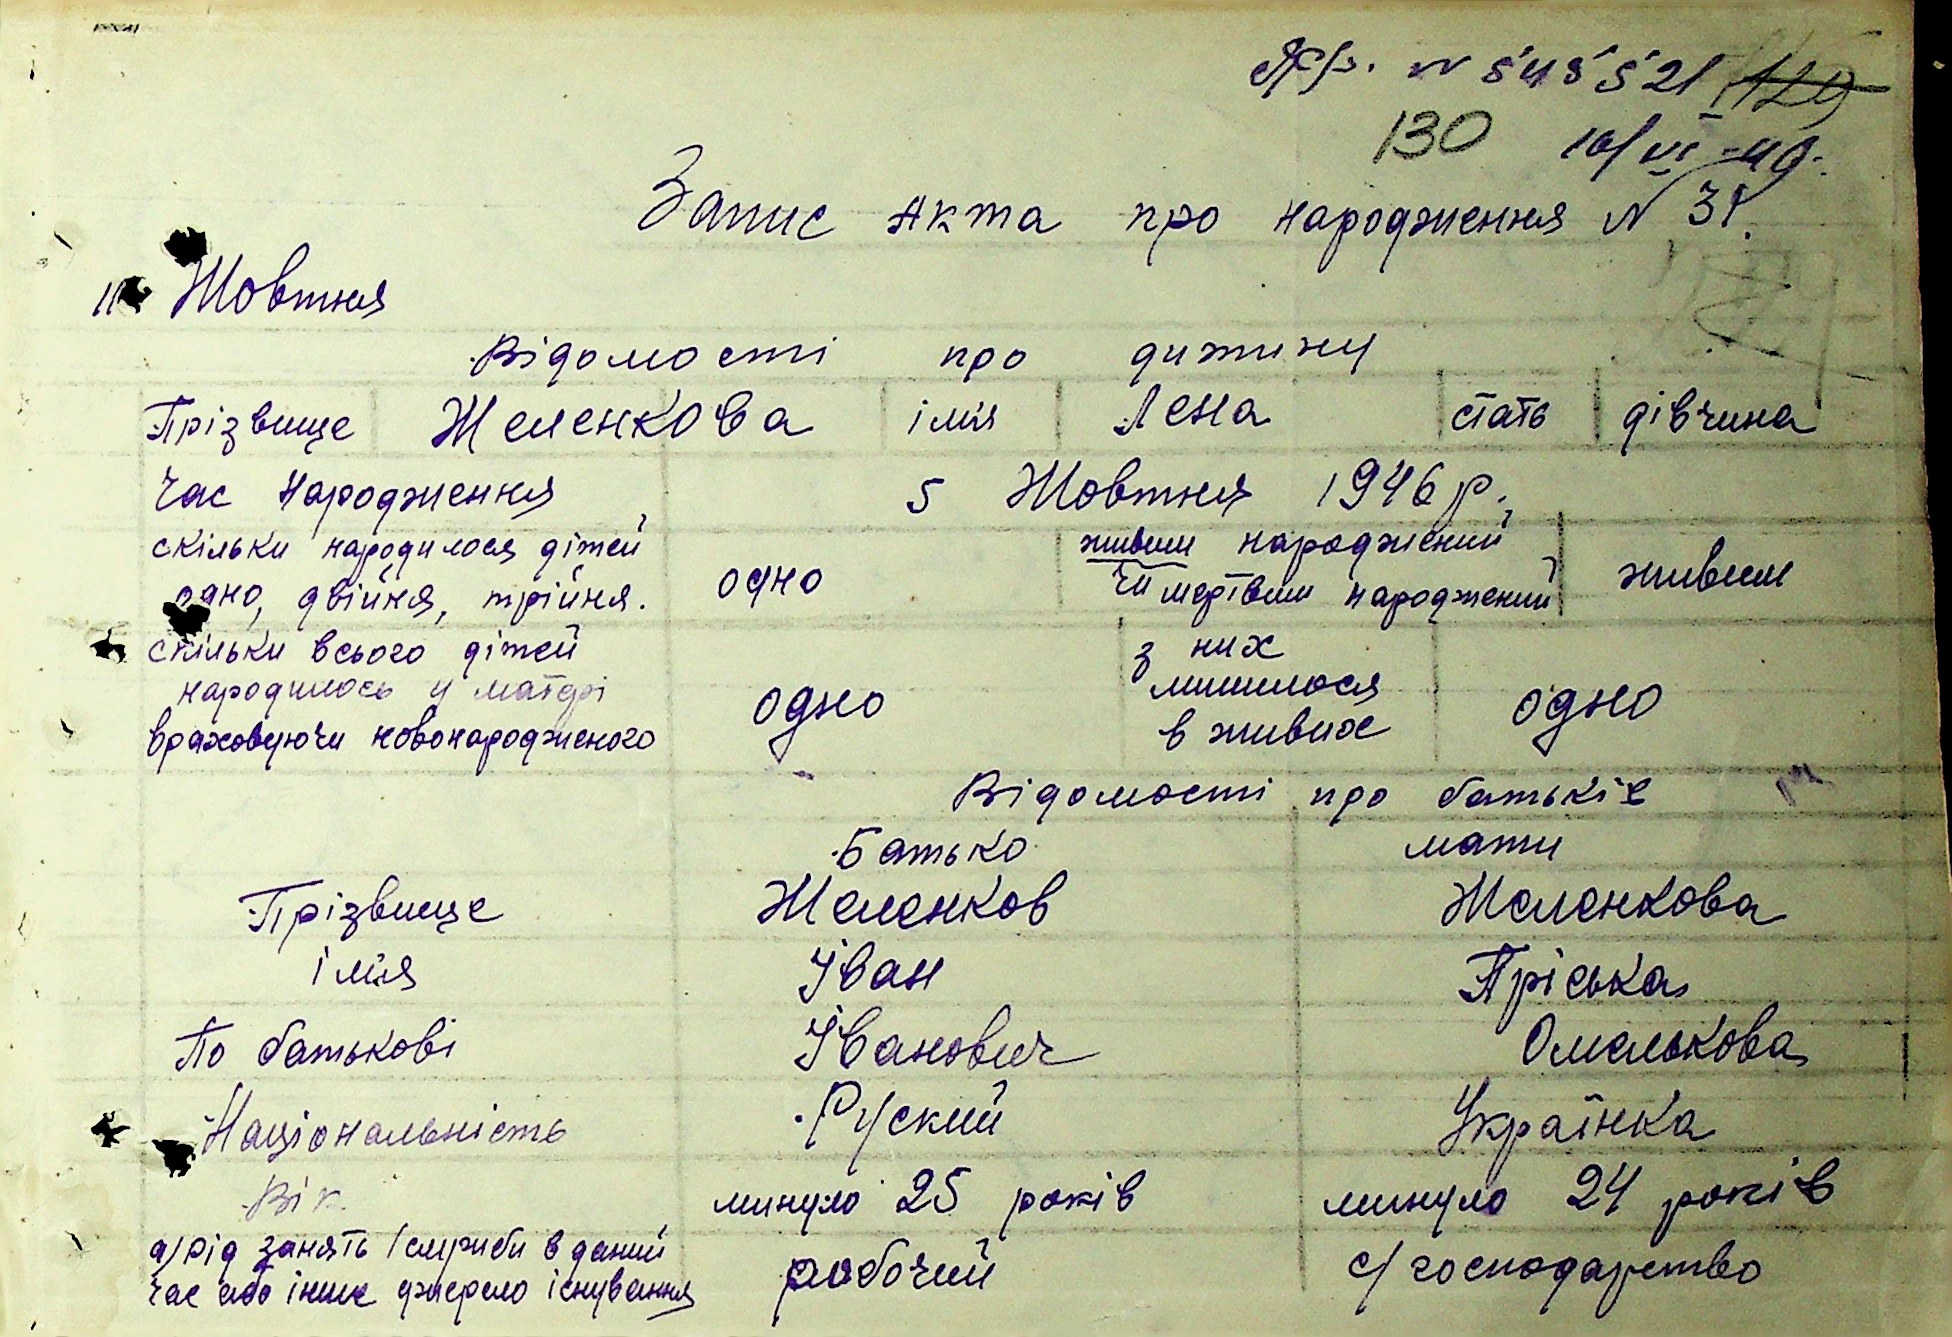 N 545521 129
130 10/VI-49.
Запис Акта про народження N 31.
11 Жовтня
Відомості про дитину
Прізвище Желенкова імя Лена стать дівчина
Час Народження 5 Жовтня 1946 р.
скільки народилося дітей живим народжений
одно, двійня, трійня. одно чи мертвим народжений живим
скільки всього дітей з них
народилось у матері одно лишилося одно
враховуючи новонародженого в живих
Відомості про батьків
Батько мати
Прізвище Желенков Желенкова
імя Іван Пріська
По батькові Іванович Омелькова
Національність Руский Українка
Вік минуло 25 років минуло 24 років
а/ рід занять /служби в даний
час або інше джерело існування робочий с/господарство